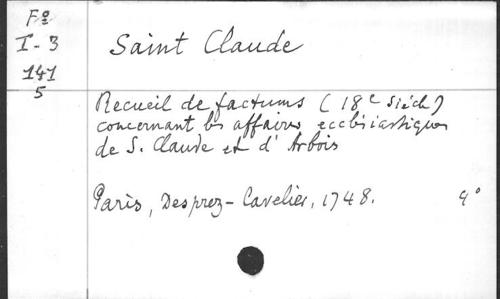 Fº
I-3
141
5
Saint Claude
Recueil de factums (18e siécle)
concernant les affaires ecclésiastiques
de S. Claude et d'Arbois
Paris, Desprez-Cavelier, 1748. 4°